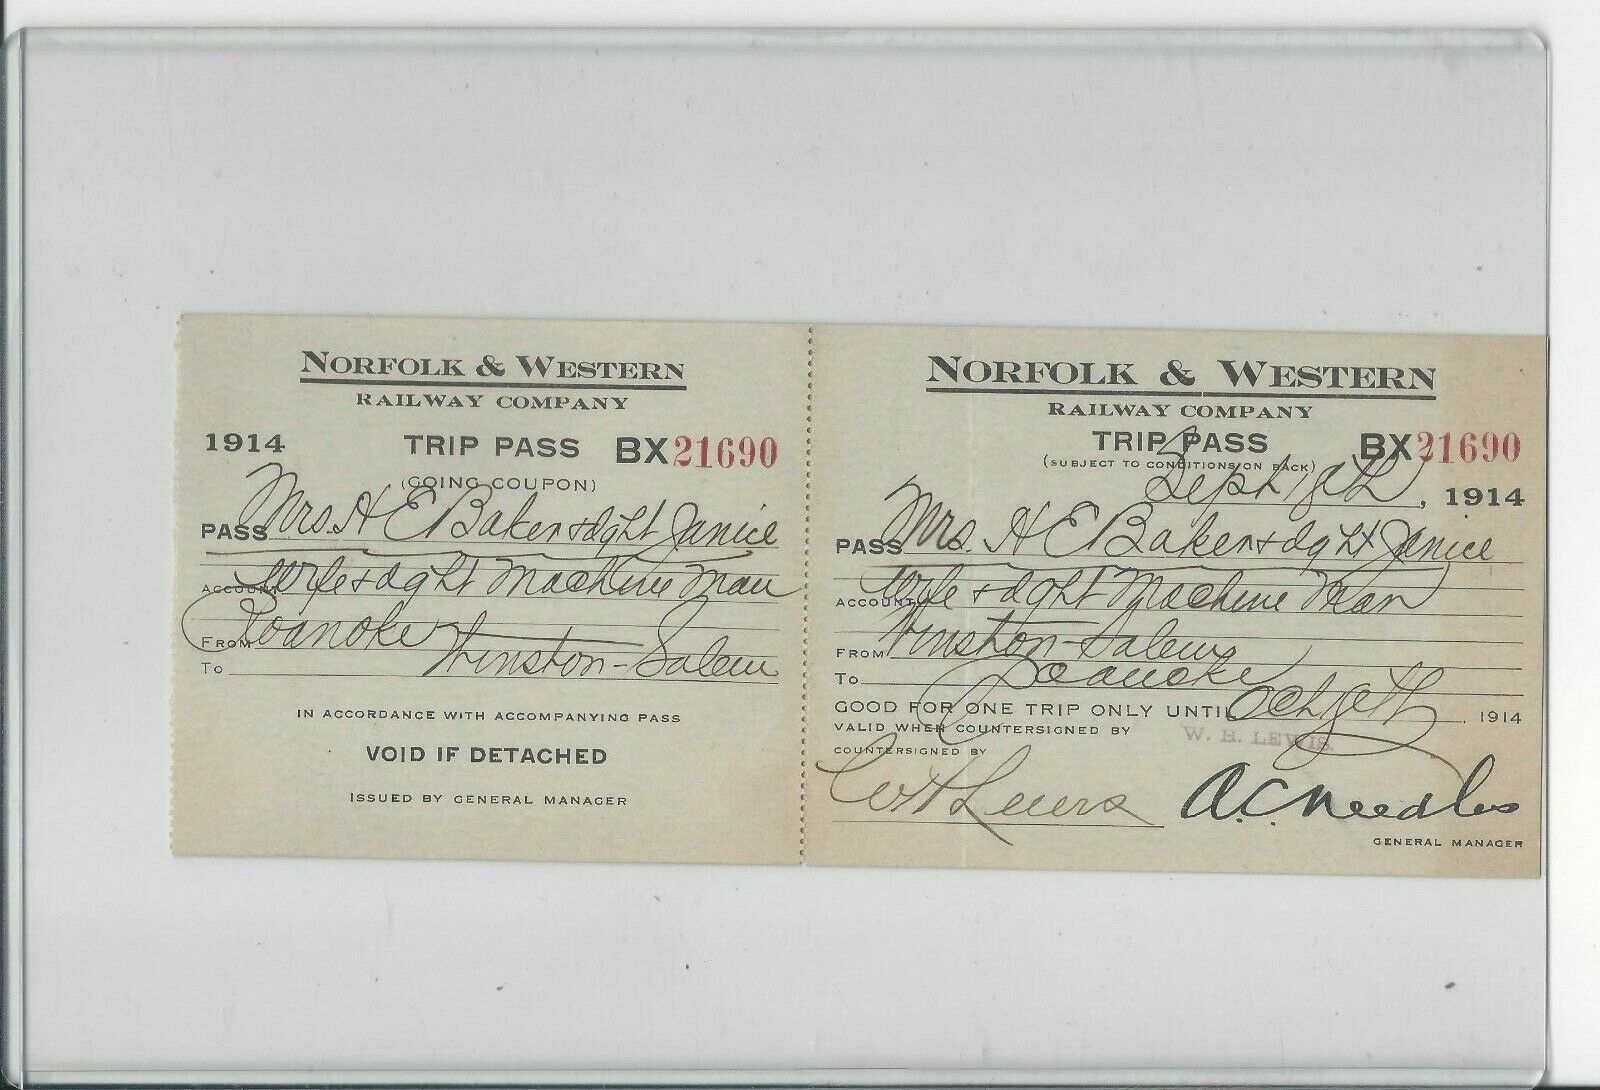 NORFOLK & WESTERN
RAILWAY COMPANY
1914 TRIP PASS BX21690
(GOING COUPON)
PASS Mrs. H E Baker & dght Janice
ACCOUNT Wife & dght Machine Man
FROM Roanoke
TO Winston-Salem
IN ACCORDANCE WITH ACCOMPANYING PASS
VOID IF DETACHED
ISSUED BY GENERAL MANAGER
NORFOLK & WESTERN
RAILWAY COMPANY
TRIP PASS BX21690
(SUBJECT TO CONDITIONS ON BACK)
Sept 18th, 1914
PASS Mrs. H E Baker & dght Janice
ACCOUNT Wife & dght Machine Man
FROM Winston-Salem
TO Roanoke
GOOD FOR ONE TRIP ONLY UNTIL Oct, 1914
VALID WHEN COUNTERSIGNED BY
W. H. LEWIS.
COUNTERSIGNED BY
A.C. Needles
GENERAL MANAGER